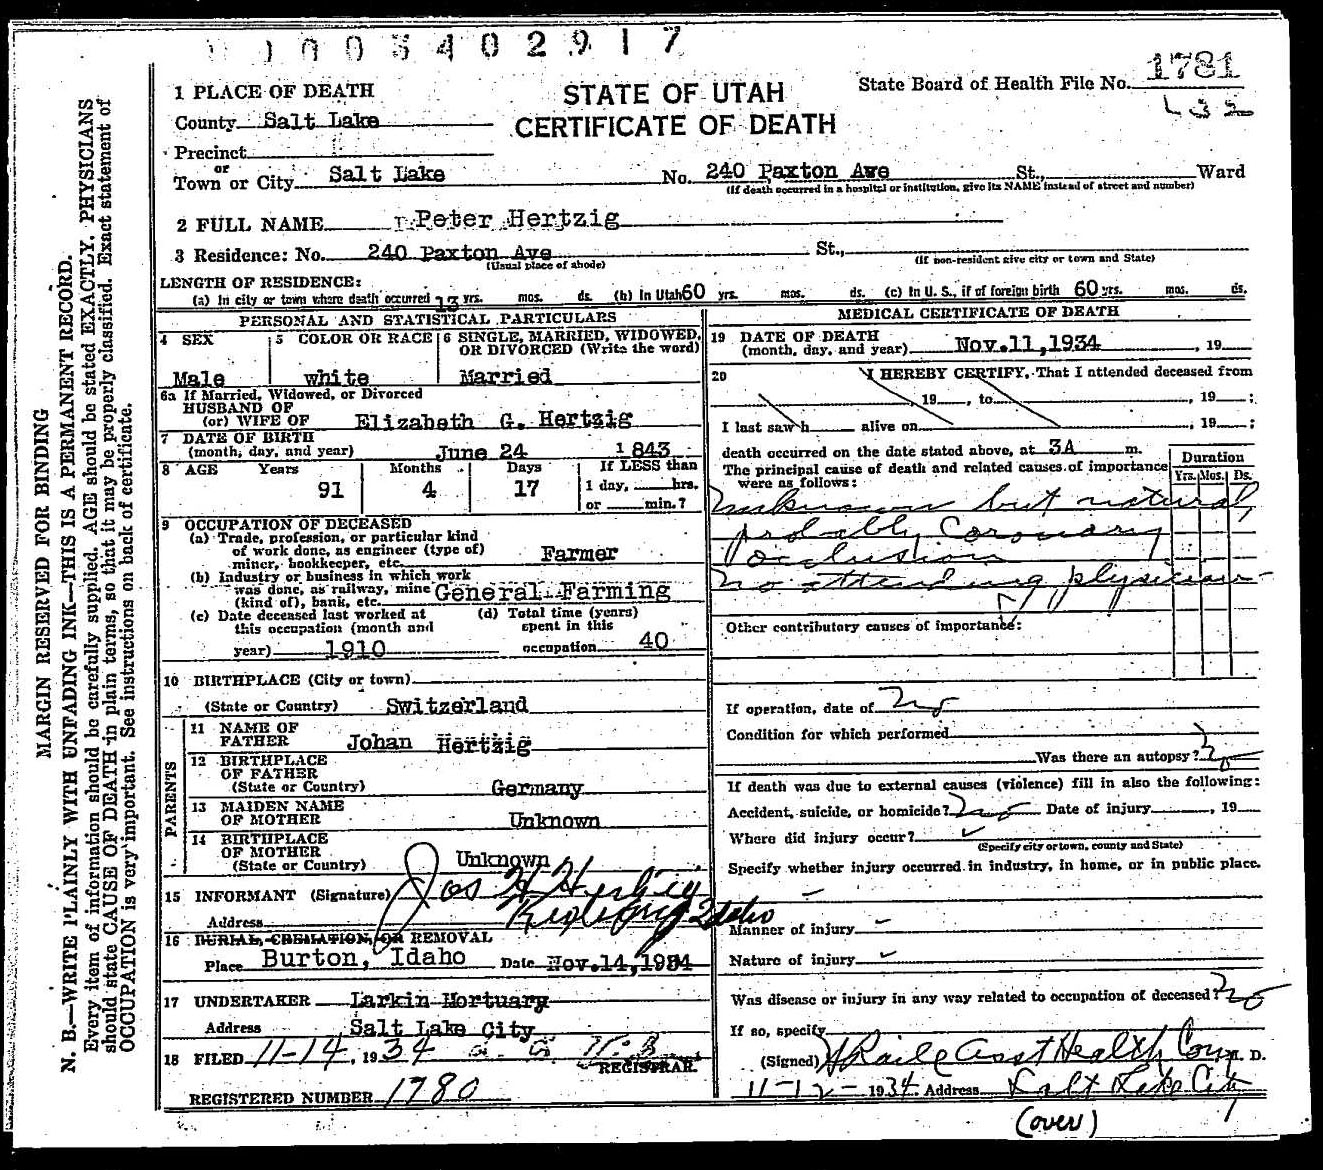 1003402917
1781
State Board of Health File No.
STATE OF UTAH
CERTIFICATE OF DEATH
1 PLACE OF DEATH
County Salt Lake
Precinct
or
Town or City Salt Lake No. 240 Paxton Ave St., Ward
(If death occurred in a hospital or institution, give its NAME instead of street and number)
2 FULL NAME Peter Hertzig
3 Residence: No. 240 Paxton Ave St.,
(Usual place of abode) (If non-resident give city or town and State)
LENGTH OF RESIDENCE:
(a) In city or town where death occurred 13 yrs. mos. ds. (b) In Utah 60 yrs. mos. ds. (c) In U. S., if of foreign birth 60 yrs. mos. ds.
PERSONAL AND STATISTICAL PARTICULARS
4 SEX 5 COLOR OR RACE 6 SINGLE, MARRIED, WIDOWED,
OR DIVORCED (Write the word)
Male white Married
6a If Married, Widowed, or Divorced
HUSBAND OF
(or) WIFE OF Elizabeth G. Hertzig
7 DATE OF BIRTH
(month, day, and year) June 24 1843
8 AGE Years Months Days If LESS than
91 4 17 1 day, hrs.
or min.?
9 OCCUPATION OF DECEASED
(a) Trade, profession, or particular kind
of work done, as engineer (type of)
miner, bookkeeper, etc. Farmer
(b) Industry or business in which work
was done, as railway, mine
(kind of), bank, etc. General Farming
(c) Date deceased last worked at (d) Total time (years)
this occupation (month and spent in this
year) 1910 occupation 40
10 BIRTHPLACE (City or town)
(State or Country) Switzerland
PARENTS
11 NAME OF
FATHER Johan Hertzig
12 BIRTHPLACE
OF FATHER
(State or Country) Germany
13 MAIDEN NAME
OF MOTHER Unknown
14 BIRTHPLACE
OF MOTHER
(State or Country) Unknown
15 INFORMANT (Signature) Jos H
Address Idaho
16 BURIAL, CREMATION, OR REMOVAL
Place Burton, Idaho Date Nov.14,1934
17 UNDERTAKER Larkin Mortuary
Address Salt Lake City
18 FILED 11-14, 1934
REGISTRAR.
REGISTERED NUMBER 1780
MEDICAL CERTIFICATE OF DEATH
19 DATE OF DEATH
(month, day, and year) Nov.11,1934 , 19
20 I HEREBY CERTIFY, That I attended deceased from
, 19 , to , 19 ;
I last saw h alive on , 19 ;
death occurred on the date stated above, at 3A m.
The principal cause of death and related causes of importance
were as follows:
Duration
Yrs. Mos. Ds.
unknown but natural,
probably Coronary
occlusion
no attending physician
Other contributory causes of importance:
If operation, date of no
Condition for which performed
Was there an autopsy? no
If death was due to external causes (violence) fill in also the following:
Accident, suicide, or homicide? no Date of injury , 19
Where did injury occur?
(Specify city or town, county and State)
Specify whether injury occurred in industry, in home, or in public place.
Manner of injury
Nature of injury
Was disease or injury in any way related to occupation of deceased? no
If so, specify
(Signed) Asst Health Com M. D.
11-12-1934. Address Salt Lake City
(over)
MARGIN RESERVED FOR BINDING
N. B.—WRITE PLAINLY WITH UNFADING INK—THIS IS A PERMANENT RECORD.
Every item of information should be carefully supplied. AGE should be stated EXACTLY. PHYSICIANS
should state CAUSE OF DEATH in plain terms, so that it may be properly classified. Exact statement of
OCCUPATION is very important. See instructions on back of certificate.